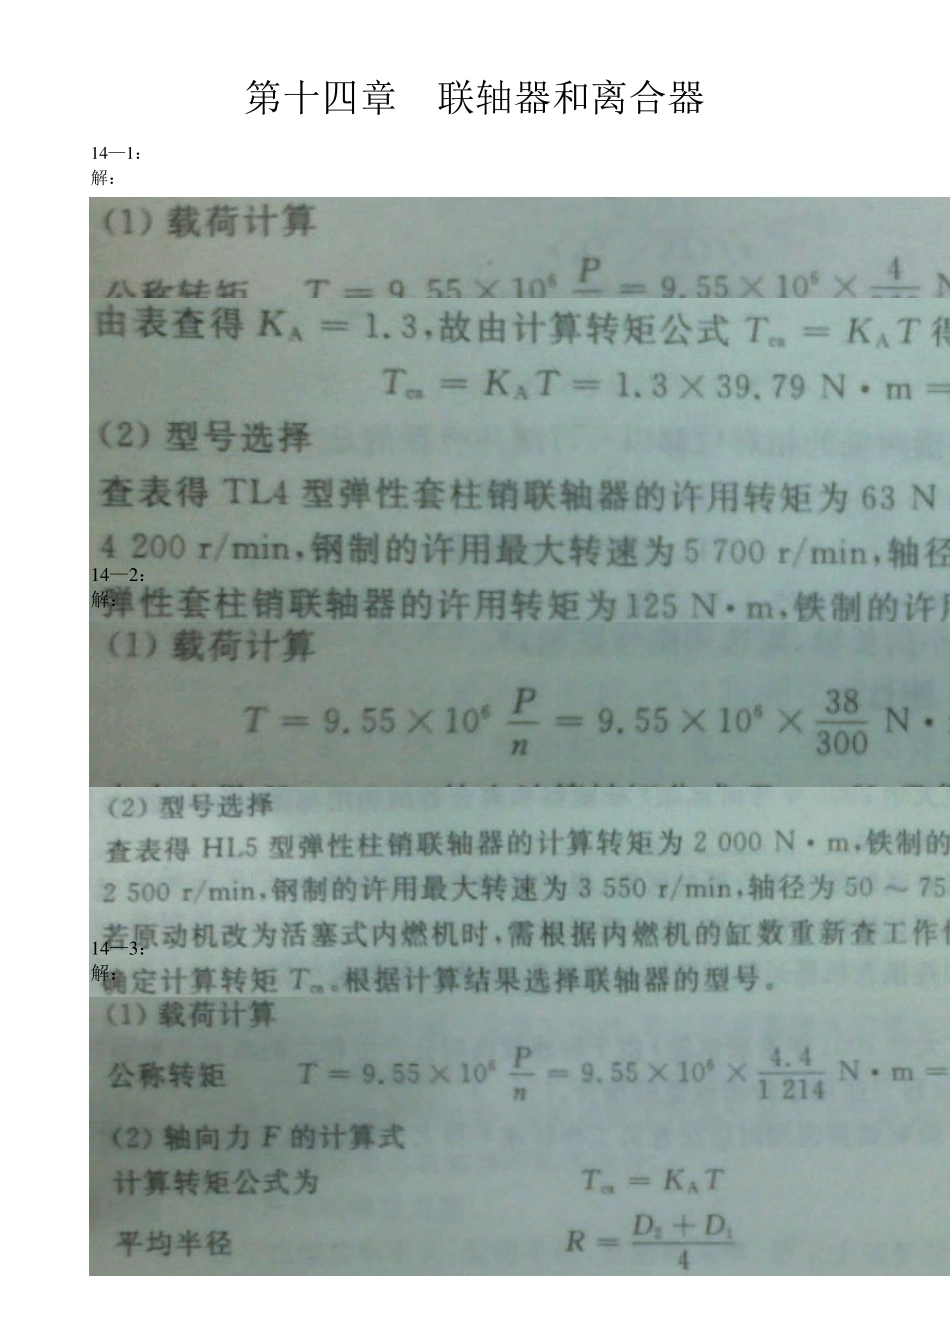 第十四章　联轴器和离合器
14—1：
解：
(1) 载荷计算
公称转矩 T = 9.55×10⁶ P = 9.55×10⁶ × 4
由表查得 K_A = 1.3,故由计算转矩公式 T_ca = K_A T 得
T_ca = K_A T = 1.3×39.79 N·m =
(2) 型号选择
查表得 TL4 型弹性套柱销联轴器的许用转矩为 63 N
4 200 r/min,钢制的许用最大转速为 5 700 r/min,轴径
14—2：
解：
弹性套柱销联轴器的许用转矩为 125 N·m,铁制的许用
(1) 载荷计算
T = 9.55×10⁶ P/n = 9.55×10⁶ × 38/300 N·
(2) 型号选择
查表得 HL5 型弹性柱销联轴器的计算转矩为 2 000 N·m,铁制的
2 500 r/min,钢制的许用最大转速为 3 550 r/min,轴径为 50 ~ 75
若原动机改为活塞式内燃机时,需根据内燃机的缸数重新查工作
14—3：
解：
确定计算转矩 T_ca。根据计算结果选择联轴器的型号。
(1) 载荷计算
公称转矩 T = 9.55×10⁶ P/n = 9.55×10⁶ × 4.4/1 214 N·m =
(2) 轴向力 F 的计算式
计算转矩公式为 T_ca = K_A T
平均半径 R = (D₂ + D₁)/4